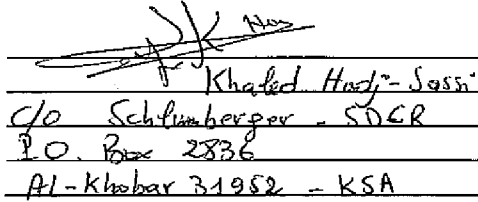 Khaled Hadj-Sassi
C/O Schlumberger - SDCR
P.O. Box 2836
Al-Khobar 31952 - KSA